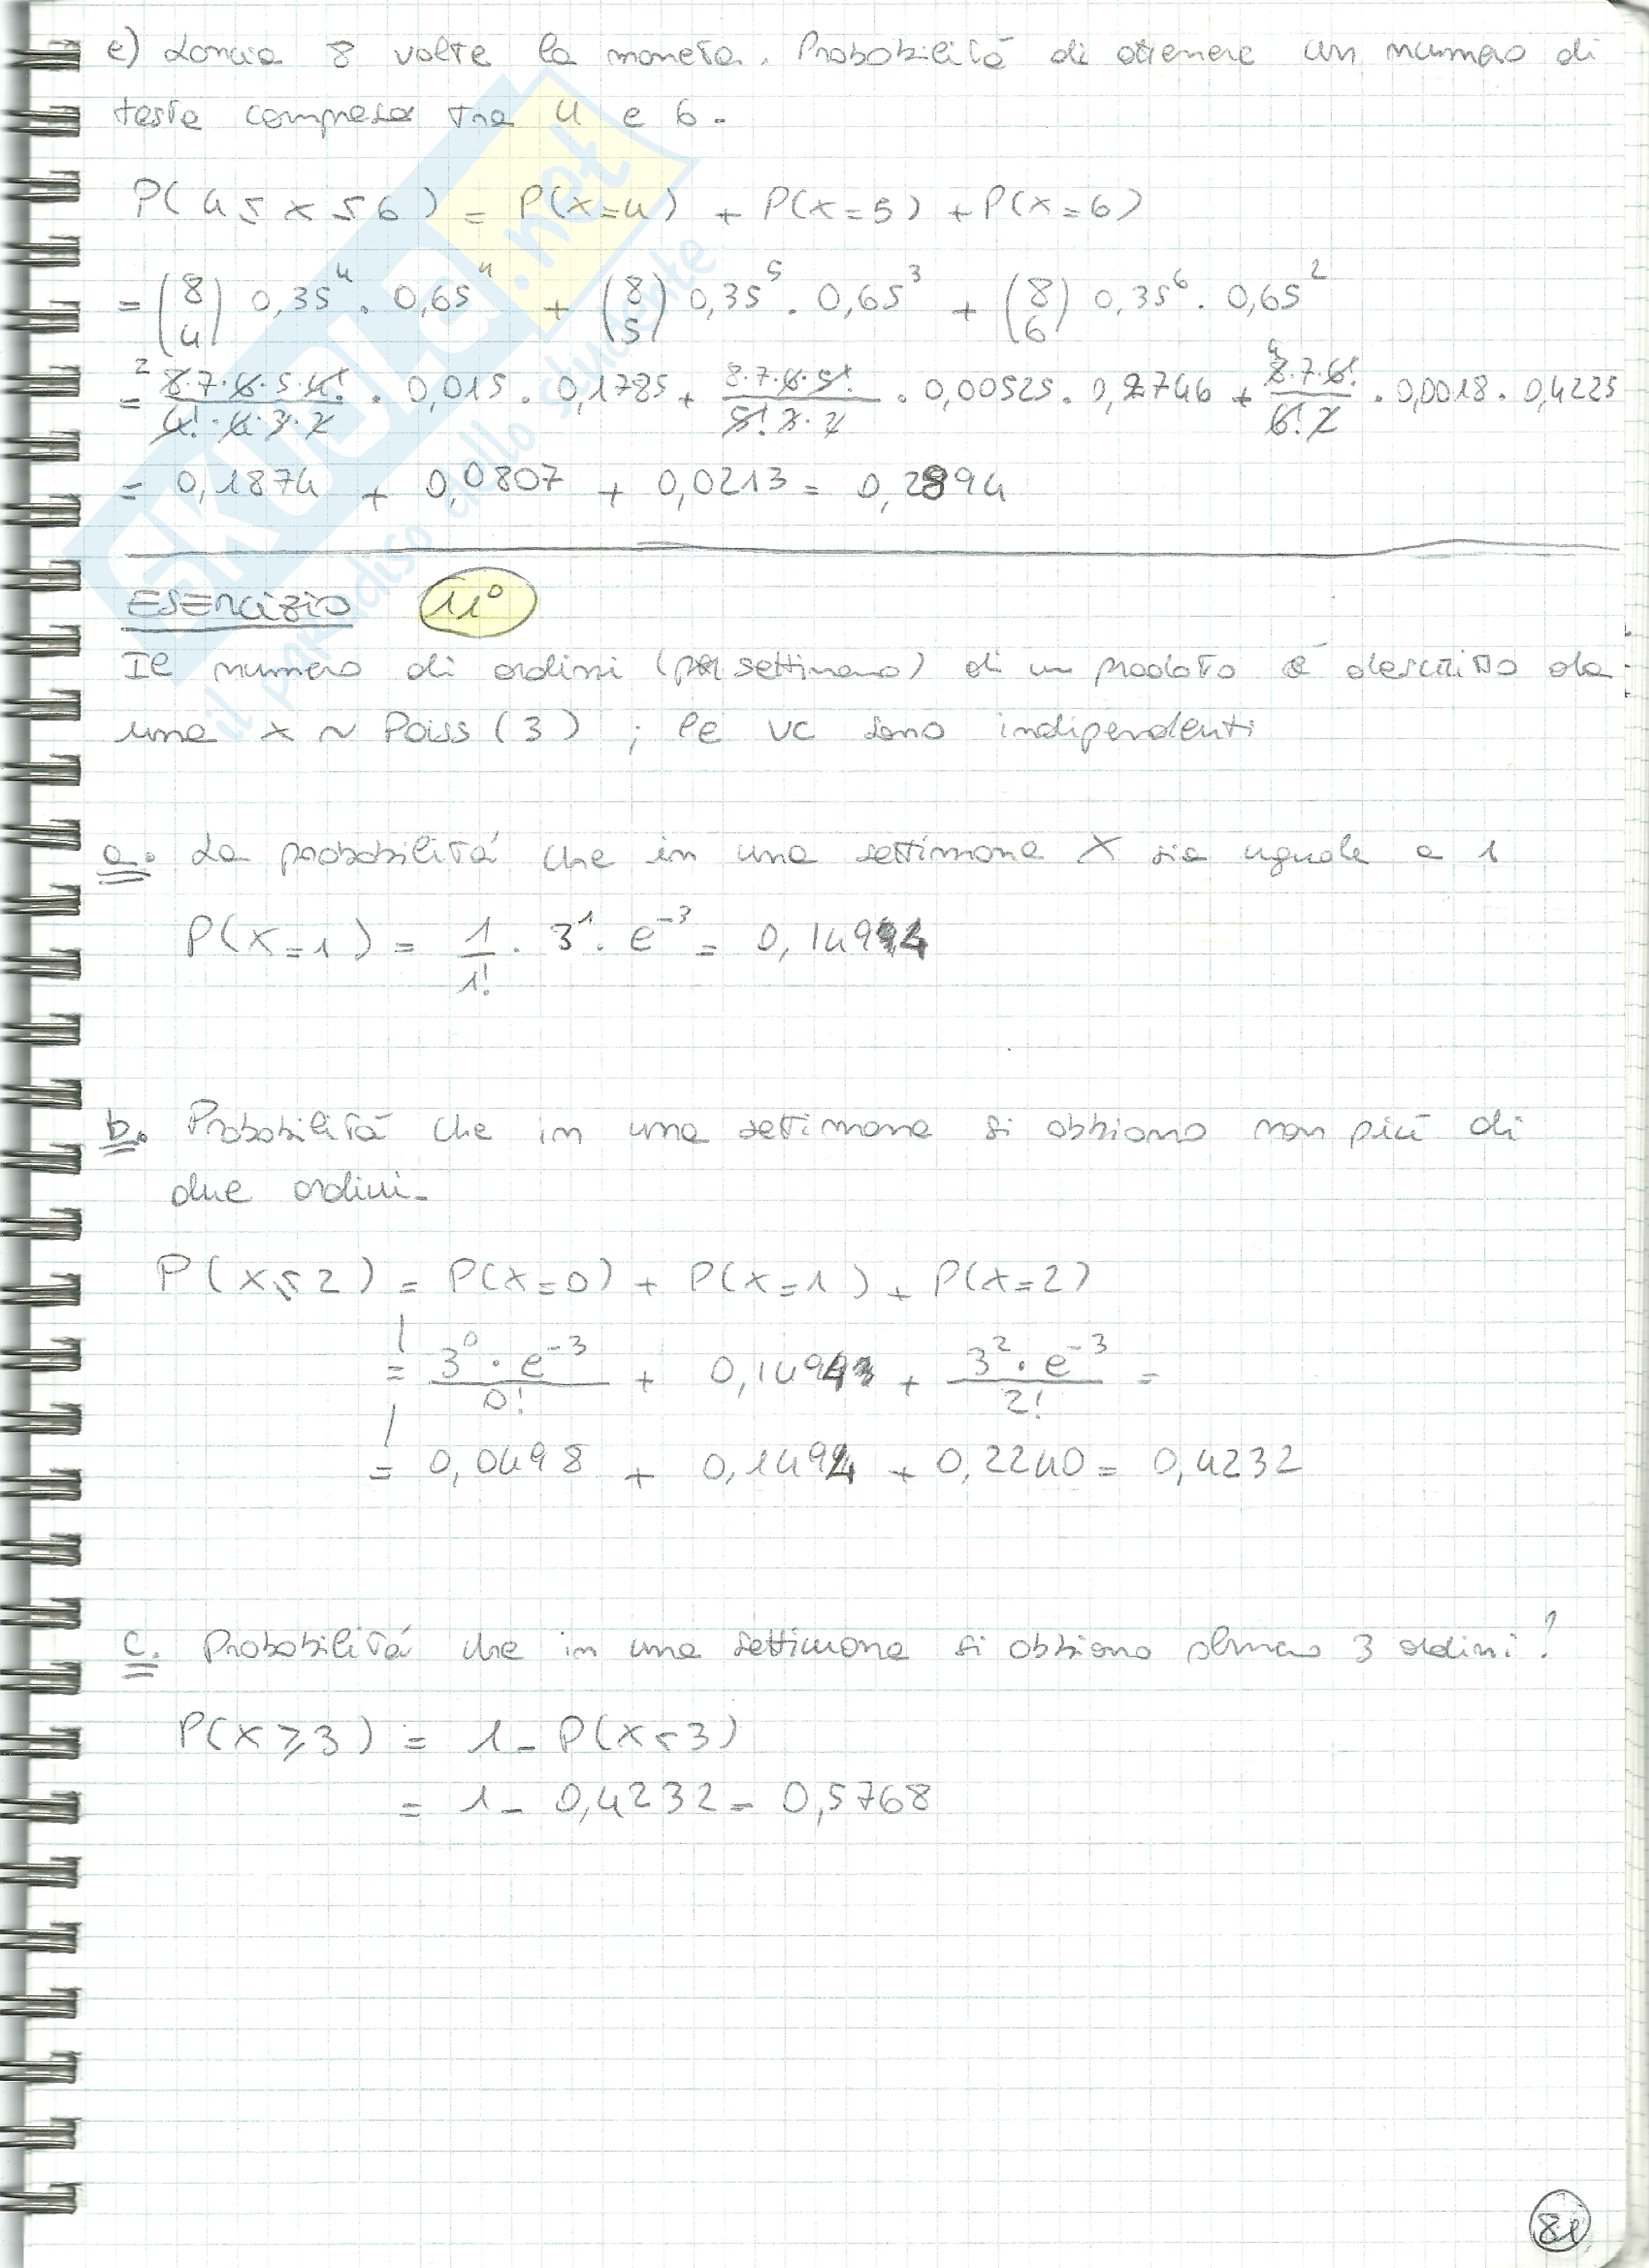 e) Lancia 8 volte la moneta. Probabilità di ottenere un numero di
teste compreso tra 4 e 6.
P(4 ≤ x ≤ 6) = P(x=4) + P(x=5) + P(x=6)
= (8 4) 0,35^4 · 0,65^4 + (8 5) 0,35^5 · 0,65^3 + (8 6) 0,35^6 · 0,65^2
= 2 8·7·6·5·4!/4!·4·3·2 · 0,015 · 0,1785 + 8·7·6·5!/5!·3·2 · 0,00525 · 0,2746 + 4 8·7·6!/6!·2 · 0,0018 · 0,4225
= 0,1874 + 0,0807 + 0,0213 = 0,2894
Esercizio 11°
Il numero di ordini (per settimana) di un prodotto è descritto da
una x ~ Poiss (3) ; le vc sono indipendenti
a. La probabilità che in una settimana X sia uguale a 1
P(x=1) = 1/1! · 3^1 · e^-3 = 0,1494
b. Probabilità che in una settimana si abbiano non più di
due ordini.
P(x≤2) = P(x=0) + P(x=1) + P(x=2)
= 3^0 · e^-3/0! + 0,1494 + 3^2 · e^-3/2! =
= 0,0498 + 0,1494 + 0,2240 = 0,4232
c. Probabilità che in una settimana si abbiano almeno 3 ordini?
P(x≥3) = 1 - P(x<3)
= 1 - 0,4232 = 0,5768
81
SKUOLA.net
il paradiso dello studente